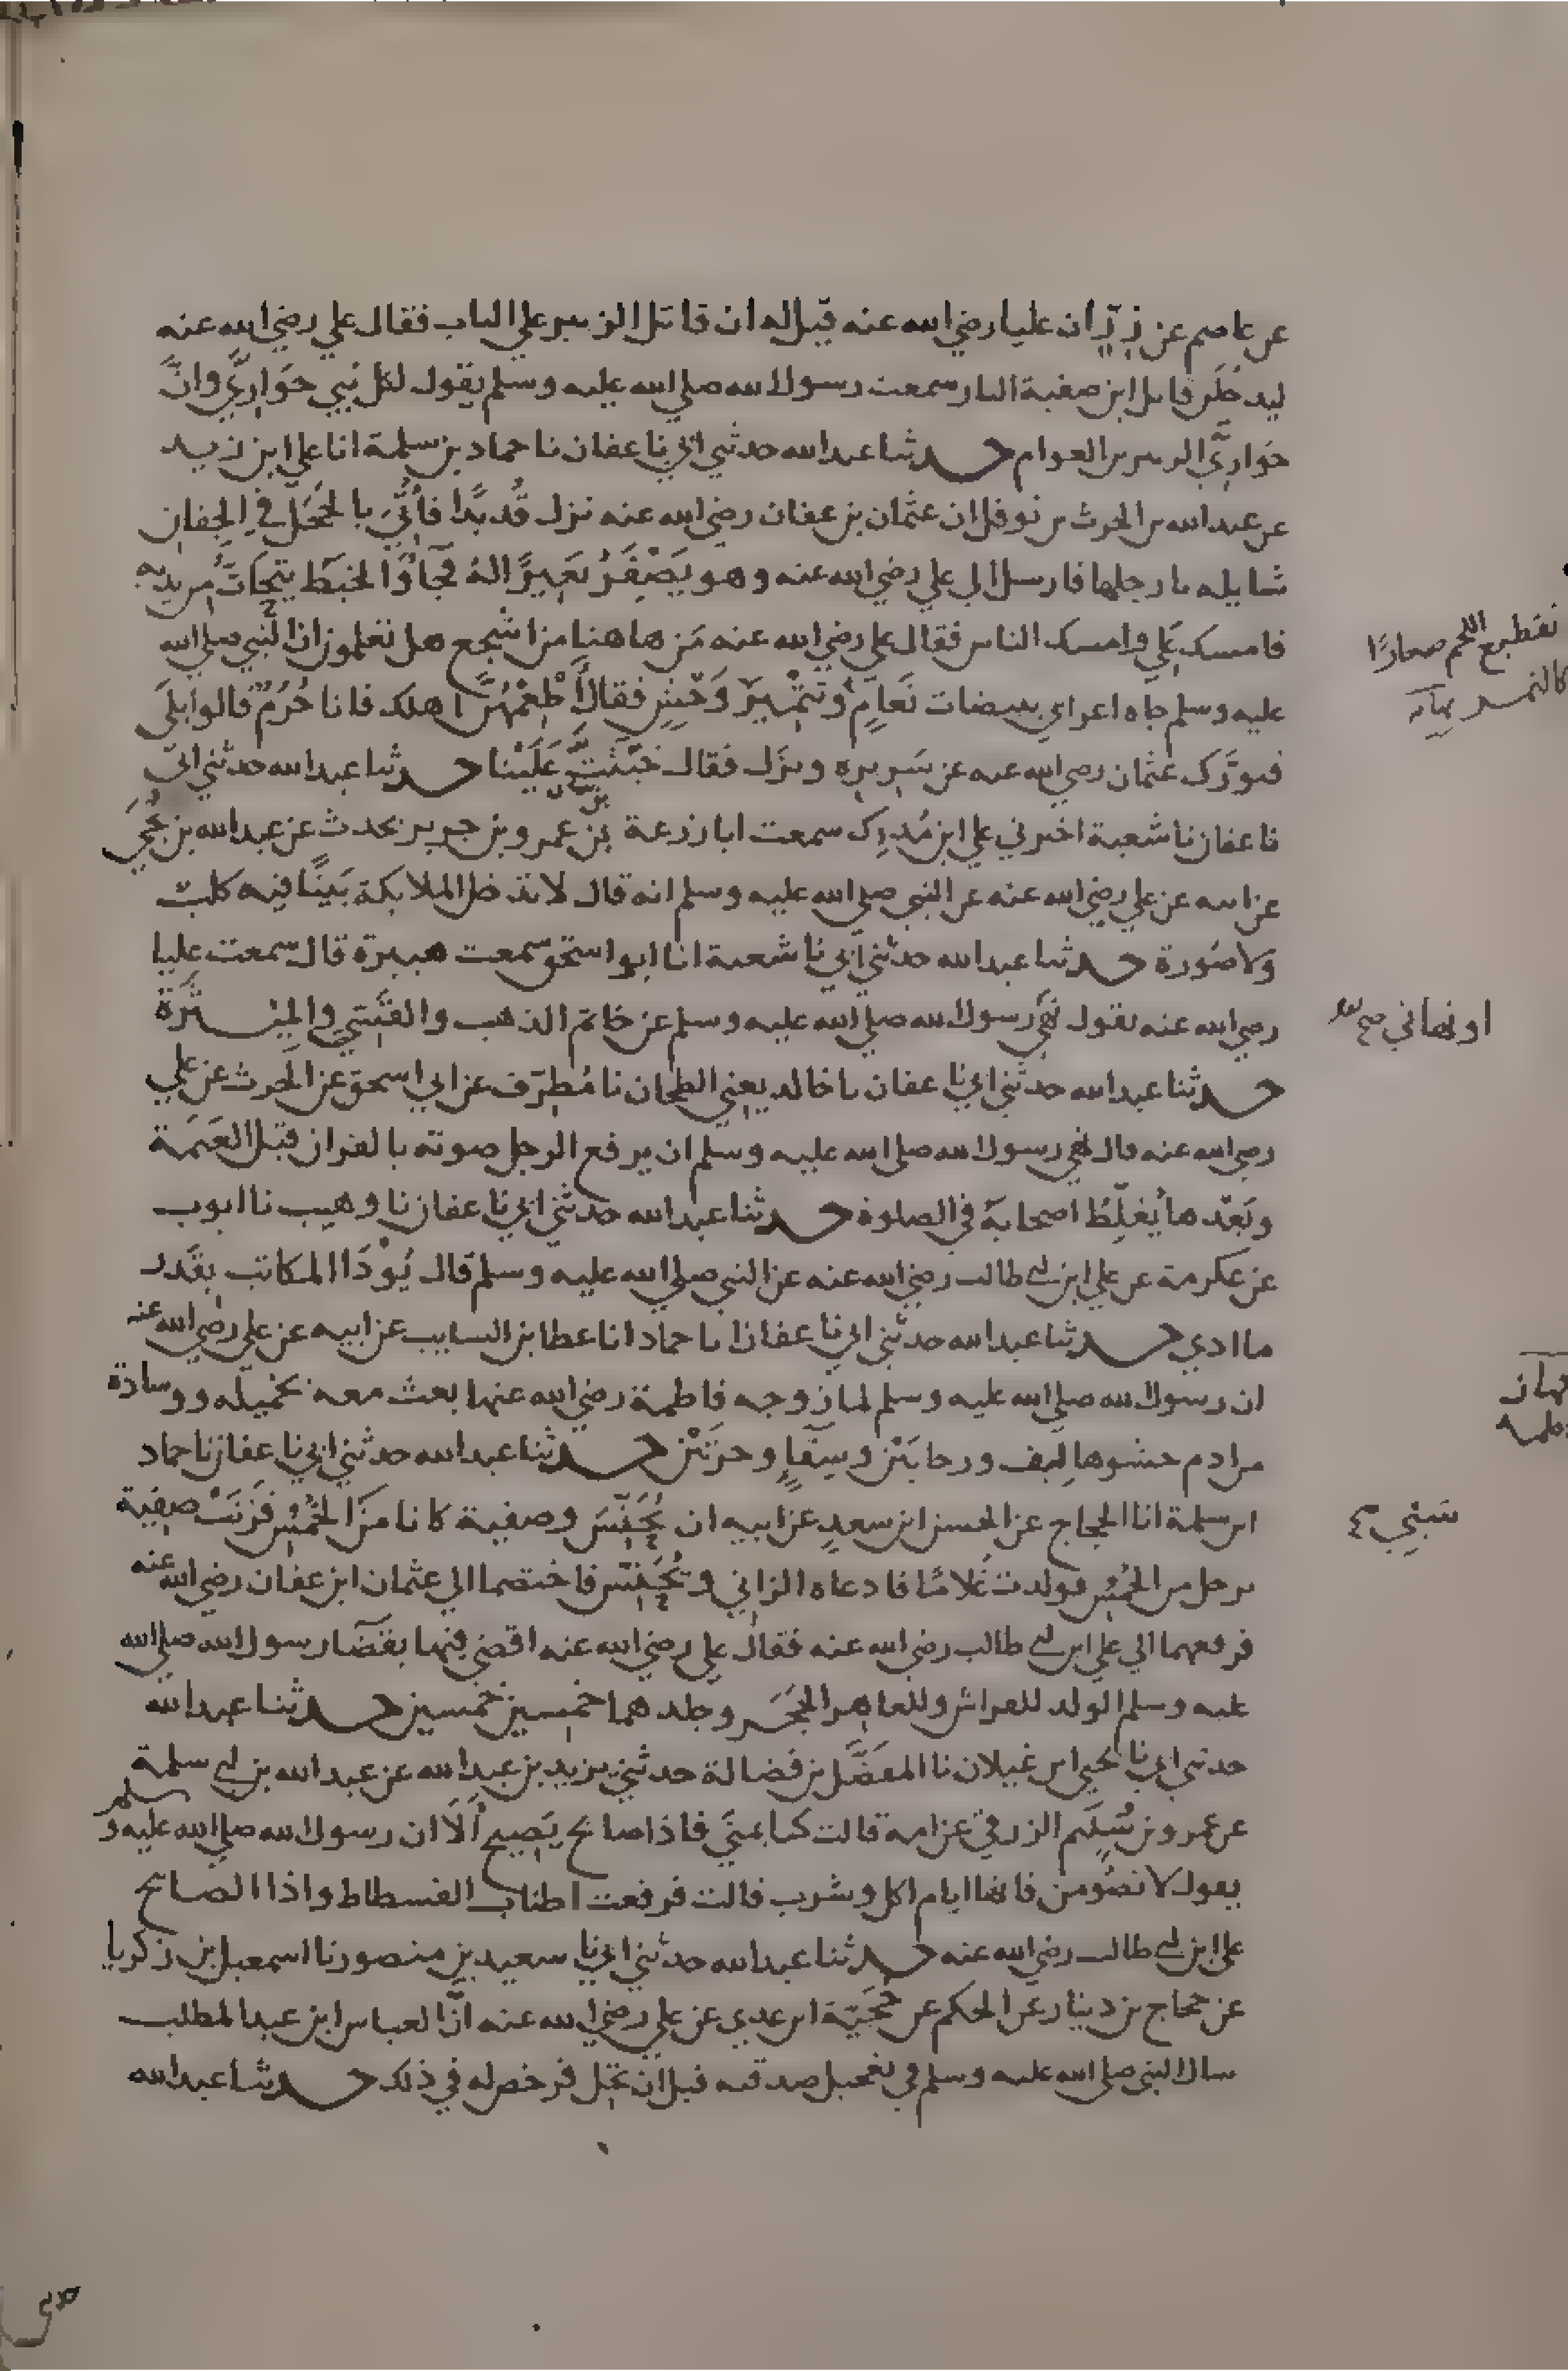 عن عاصم عن زر ان عليا رضي الله عنه قيل له ان قاتل الزبير علي الباب فقال علي رضي الله عنه
ليدخلن قاتل ابن صفية النار سمعت رسول الله صلي الله عليه وسلم يقول لكل نبي حواري وان
حواري الزبير بن العوام حدثنا عبد الله حدثني ابي نا عفان نا حماد بن سلمة انا علي ابن زيد
عن عبد الله بن الحرث بن نوفل ان عثمان بن عفان رضي الله عنه نزل قديدا فاتي بالحجل في الجفان
شايله بارجلها فارسل الي علي رضي الله عنه وهو يضفز بعيرا له فجا والخبط يتحات من يديه
فامسك علي وامسك الناس فقال علي رضي الله عنه من هاهنا من اشجع هل تعلمون ان النبي صلي الله
عليه وسلم جاه اعرابي ببيضات نعام وتتمير وحش فقال اطعمهن اهلك فانا حرم قالوا بلى
فتورك عثمان رضي الله عنه عن سريره ونزل فقال خبثت علينا حدثنا عبد الله حدثني ابي
نا عفان نا شعبة اخبرني علي ابن مدرك سمعت ابا زرعة بن عمرو بن جرير يحدث عن عبد الله بن نجي
عن ابيه عن علي رضي الله عنه عن النبي صلي الله عليه وسلم انه قال لا تدخل الملايكة بيتا فيه كلب
ولا صورة حدثنا عبد الله حدثني ابي نا شعبة انا ابو اسحق سمعت هبيرة قال سمعت عليا
رضي الله عنه يقول نهي رسول الله صلي الله عليه وسلم عن خاتم الذهب والقسي والميثرة
او نهاني صح
حدثنا عبد الله حدثني ابي نا عفان نا خالد يعني الطحان نا مطرف عن ابي اسحق عن الحرث عن علي
رضي الله عنه قال نهي رسول الله صلي الله عليه وسلم ان يرفع الرجل صوته بالقران قبل العتمة
وبعدها يغلط اصحابه في الصلوة حدثنا عبد الله حدثني ابي نا عفان نا وهيب نا ايوب
عن عكرمة عن علي ابن ابي طالب رضي الله عنه عن النبي صلي الله عليه وسلم قال يودا المكاتب بقدر
ما ادي حدثنا عبد الله حدثني ابي نا عفان نا حماد انا عطا بن السايب عن ابيه عن علي رضي الله عنه
ان رسول الله صلي الله عليه وسلم لما زوجه فاطمة رضي الله عنها بعث معه بخميله ووسادة
من ادم حشوها ليف ورحايين وسقا وجرتين حدثنا عبد الله حدثني ابي نا عفان نا حماد
ابن سلمة انا الحجاج عن الحسن ابن سعد عن ابيه ان يحنس وصفية كانا من الخمس فزنت صفية
برجل من الخمس فولدت غلاما فادعاه الزاني ويحنس فاختصما الي عثمان ابن عفان رضي الله عنه
فرفعهما الي علي ابن ابي طالب رضي الله عنه فقال علي رضي الله عنه اقضي فيهما بقضا رسول الله صلي الله
عليه وسلم الولد للفراش وللعاهر الحجر وجلدهما خمسين خمسين حدثنا عبد الله
حدثني ابي نا يحيي ابن غيلان نا المفضل بن فضالة حدثني يزيد بن عبد الله عن عبد الله بن ابي سلمة
عن عمرو بن سليم الزرقي عن امه قالت كنا بمني فاذا صايح يصيح الا ان رسول الله صلي الله عليه وسلم
يقول لا تصومن فانها ايام اكل وشرب قالت فرفعت اطناب الفسطاط واذا الصايح
علي ابن ابي طالب رضي الله عنه حدثنا عبد الله حدثني ابي نا سعيد بن منصور نا اسمعيل ابن زكريا
عن حجاج بن دينار عن الحكم عن حجية ابن عدي عن علي رضي الله عنه ان العباس ابن عبد المطلب
سال النبي صلي الله عليه وسلم في تعجيل صدقته قبل ان تحل فرخص له في ذلك حدثنا عبد الله
تقطيع اللحم صغارا
كالتمر
سبي